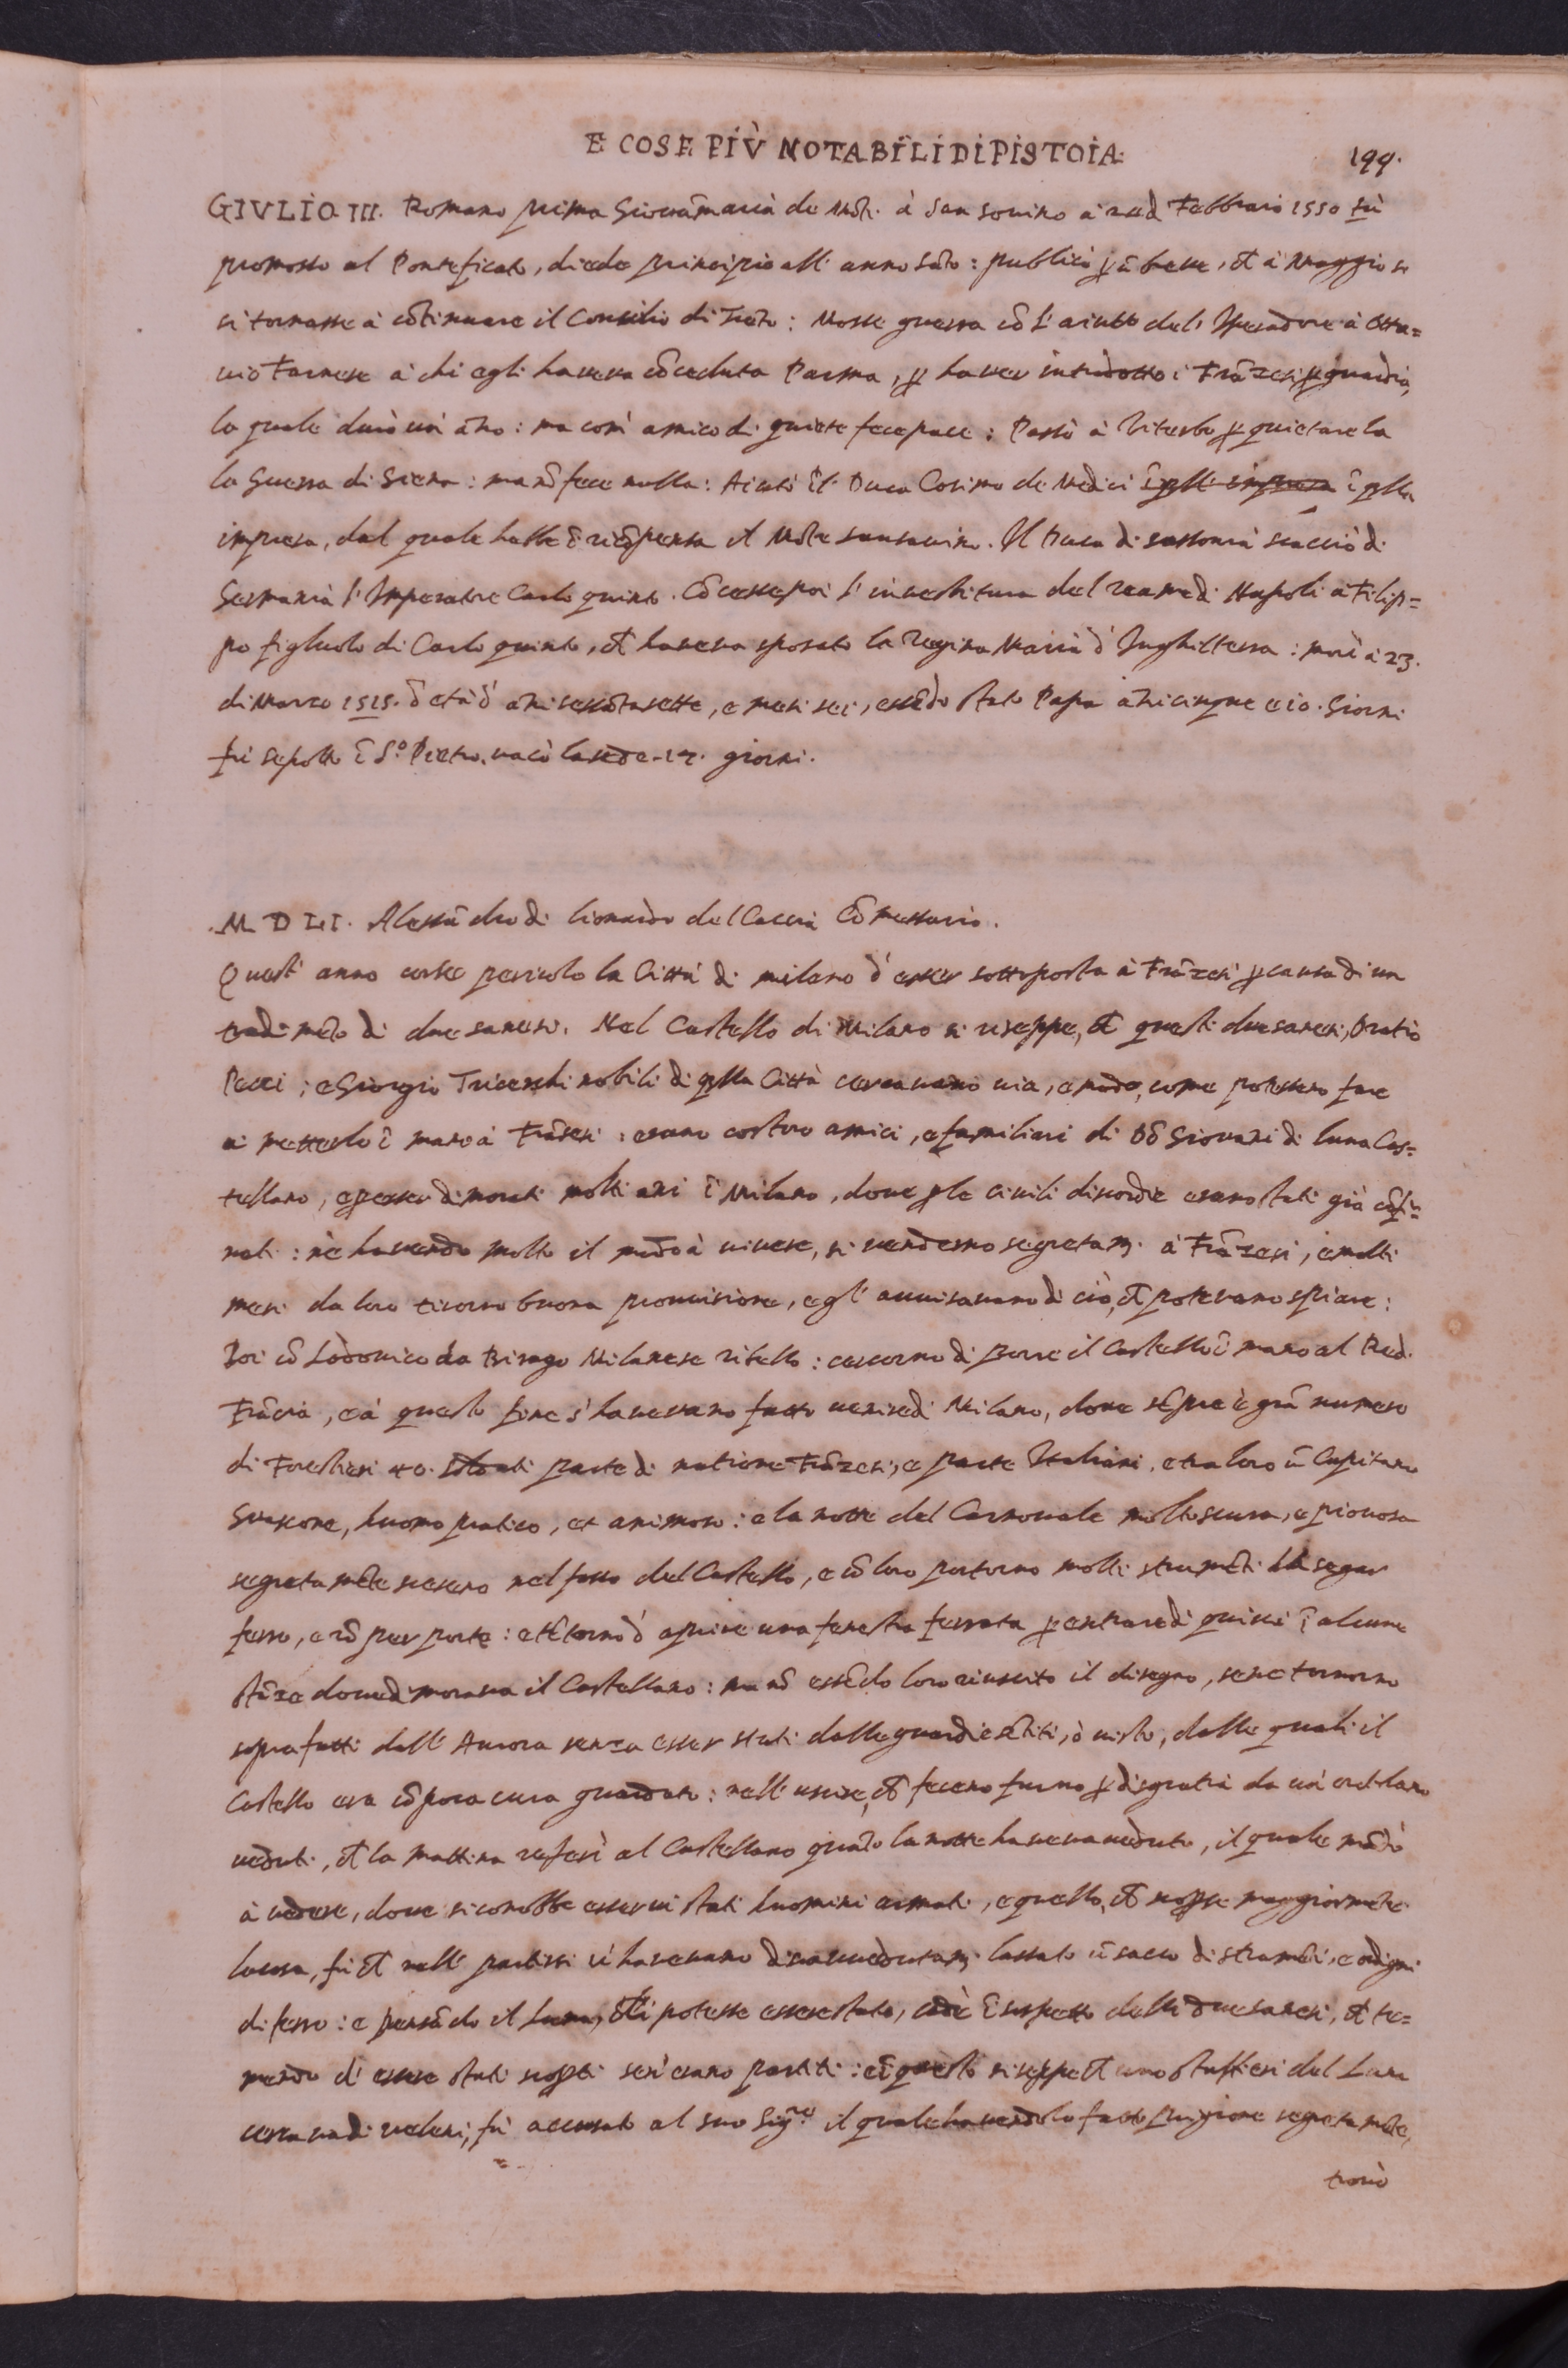 E COSE PIÙ NOTABILI DI PISTOIA. 199.
GIVLIO III. Romano prima Giovãmaria de Mõti à San sovino à 22 d Febbraio 1550 fù
promosso al Pontificato, diede principio all' anno Sãto: publicò ꝑ ũ breve, ct à Maggio si
ritornasse à cõtinuare il Consilio di Trẽto: Mosse guerra cõ l'aiutto del' Iperadore à Otta=
vio Farnese à chi egli haveva cõceduta Parma, ꝑ haver introdotto i Frãzesi ꝑ guardia,
la quale durò un' ãno: ma com' amico di quiete fece pace: Passò à Viterbo ꝑ quietare la
la Guerra di Siena: ma nõ fece nulla: Aiutò il Duca Cosimo de Medici ĩ qlla
impresa, dal quale hebbe ĩ ricõpensa il Mõte sansavino. Il Duca di sassonia scacciò di
Germania l'Imperatore Carlo quinto. Cõcesse poi l'investitura del reame di Napoli à Filip=
po figliuolo di Carlo quinto, ct haveva sposato la Regina Maria d'Inghilterra: morì à 23.
di Marzo 1515. d età d' ãni sessãtasette, e mesi sei, essẽdo stato Papa ãni cinque e 10. Giorni
fù sepolto ĩ Sº. Pietro. vacò la sede. 17. giorni.
.M D LI. Alessãdro di Lionardo del Caccia Cõmessario.
Quest' anno corse pericolo la Città di milano d'esser sottoposta à Frãzesi ꝑ causa di un
tradimẽto di due sanesi. Nel Castello di Milano si riseppe, ct questi due sanesi, Oratio
Pecci; e Giorgio Tricerchi nobili di qlla Città cercavano via, e modo, come potessero fare
a metterlo ĩ mano à Frãzesi: erano costoro amici, e familiari di Dõ Giovani di luna Cas=
tellano, e ꝑ esser dimorati molti ani ĩ Milano, dove ꝑ le civili discordie erano stati già cõfi=
nati: nè havendo molto il modo à vivere, si venderno segretamẽ. à Frãzesi, e molti
mesi da loro tirorno buona provisione, e gl' avvisavano di ciò, ct potevano spiare:
Poi cõ Lodovico da Birago Milanese ribello: cercorno di porre il Castello ĩ mano al Re d.
Frãcia, e à questo fine s' havevano fatto venire di Milano, dove sẽpre è grã numero
di Forestieri 40. soldati parte di natione Frãzesi, e parte Italiani, e tra loro ũ Capitano
Guascone, huomo pratico, et animoso: e la notte del Carnovale molto scura, e piovosa
segretamẽte scesero nel fosso del Castello, e cõ loro portorno molti strumẽti da segar
ferro, e rõper porte: e tẽtorno d' aprire una fenestra ferrata ꝑ entrare di quivi ĩ alcune
stãze dove dimorava il Castellano: ma nõ essẽdo loro riuscito il disegno, se ne tornorno
sopra fatti dall' Aurora senza esser stati dalle guardie sẽtiti, ò visto, dalle quali il
Castello era cõ poca cura guardato: nell' uscire, ct feceno furno ꝑ disgratia da un' ortolano
veduti, ct la mattina referì al Castellano quãto la notte haveva veduto, il quale mãdò
à vedere, dove si conobbe esservi stati huomini armati, e quello, ct scopse maggiormẽte
la cosa, fù ct nell' partirsi vi havevano disavvedutamẽ. lassato ũ sacco di strumẽti, e ordigni
di ferro: e pensãdo il Luna, chi potesse essere stato, cadè ĩ sospetto delli due sanesi, ct te=
mendo d' essere stati scopti sen' erano partiti: e ĩ questo si seppe ct uno staffieri del Luna
cercava di veleni, fù accusato al suo Sigre. il quale havendolo fatto prigione segretamẽte,
trovò